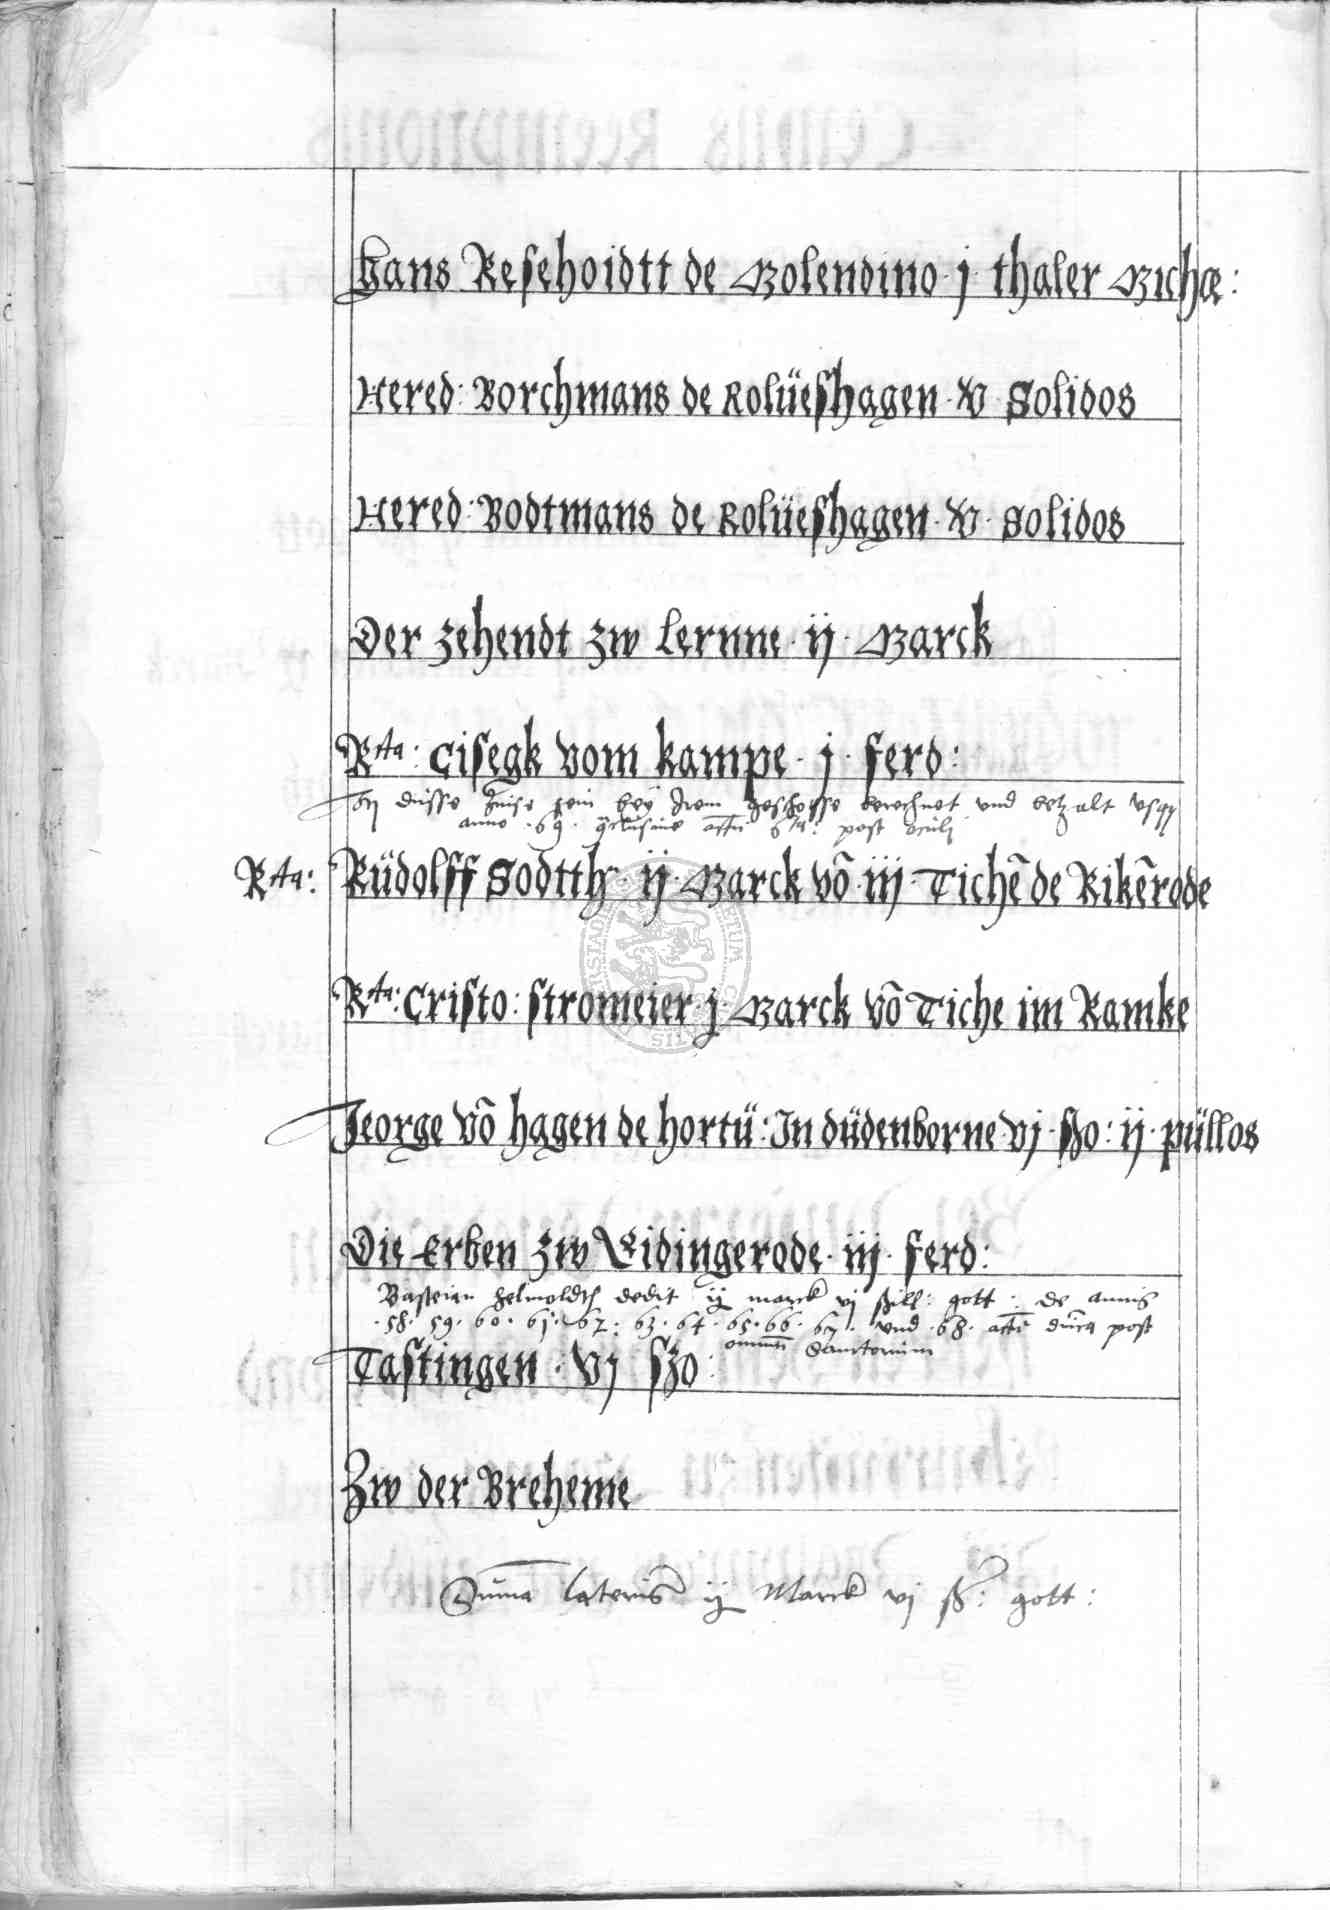 Hans Resehoidtt de Molendino · j · thaler Miche :
Hered : Borchmans de Rolüeshagen · xv · Solidos
Hered : Bodtmans de Rolüeshagen · xv · Solidos
Der Zehendt zw Lernne · ij · Marck
Rta : Cisegk vom kampe · j · ferd :
düsse sein bey Irem geschosse berechnet und betzalt usqz
anno · 69 · actu 6ta : post oculi
Rta : Rüdolff Sodtth · ij · Marck vō · iij · Tichē de Rikērode
Rta : Cristo : Stromeier · j · Marck vō Tiche im Ramke
Jeorge vō hagen de hortü : In düdenborne · vj · ßo : ij · püllos
Die Erben zw Lidingerode · iij · ferd :
Basteian Helmoldth dedit ij marck vj ßill : gott : de annis
· 58 · 59 · 60 · 61 · 62 · 63 · 64 · 65 · 66 · 67 · und · 68 · post
omniū Sanctorum
Tastingen · vj ßo :
Zw der Breheme
Suma lateris ij Marck vj ß : gott :